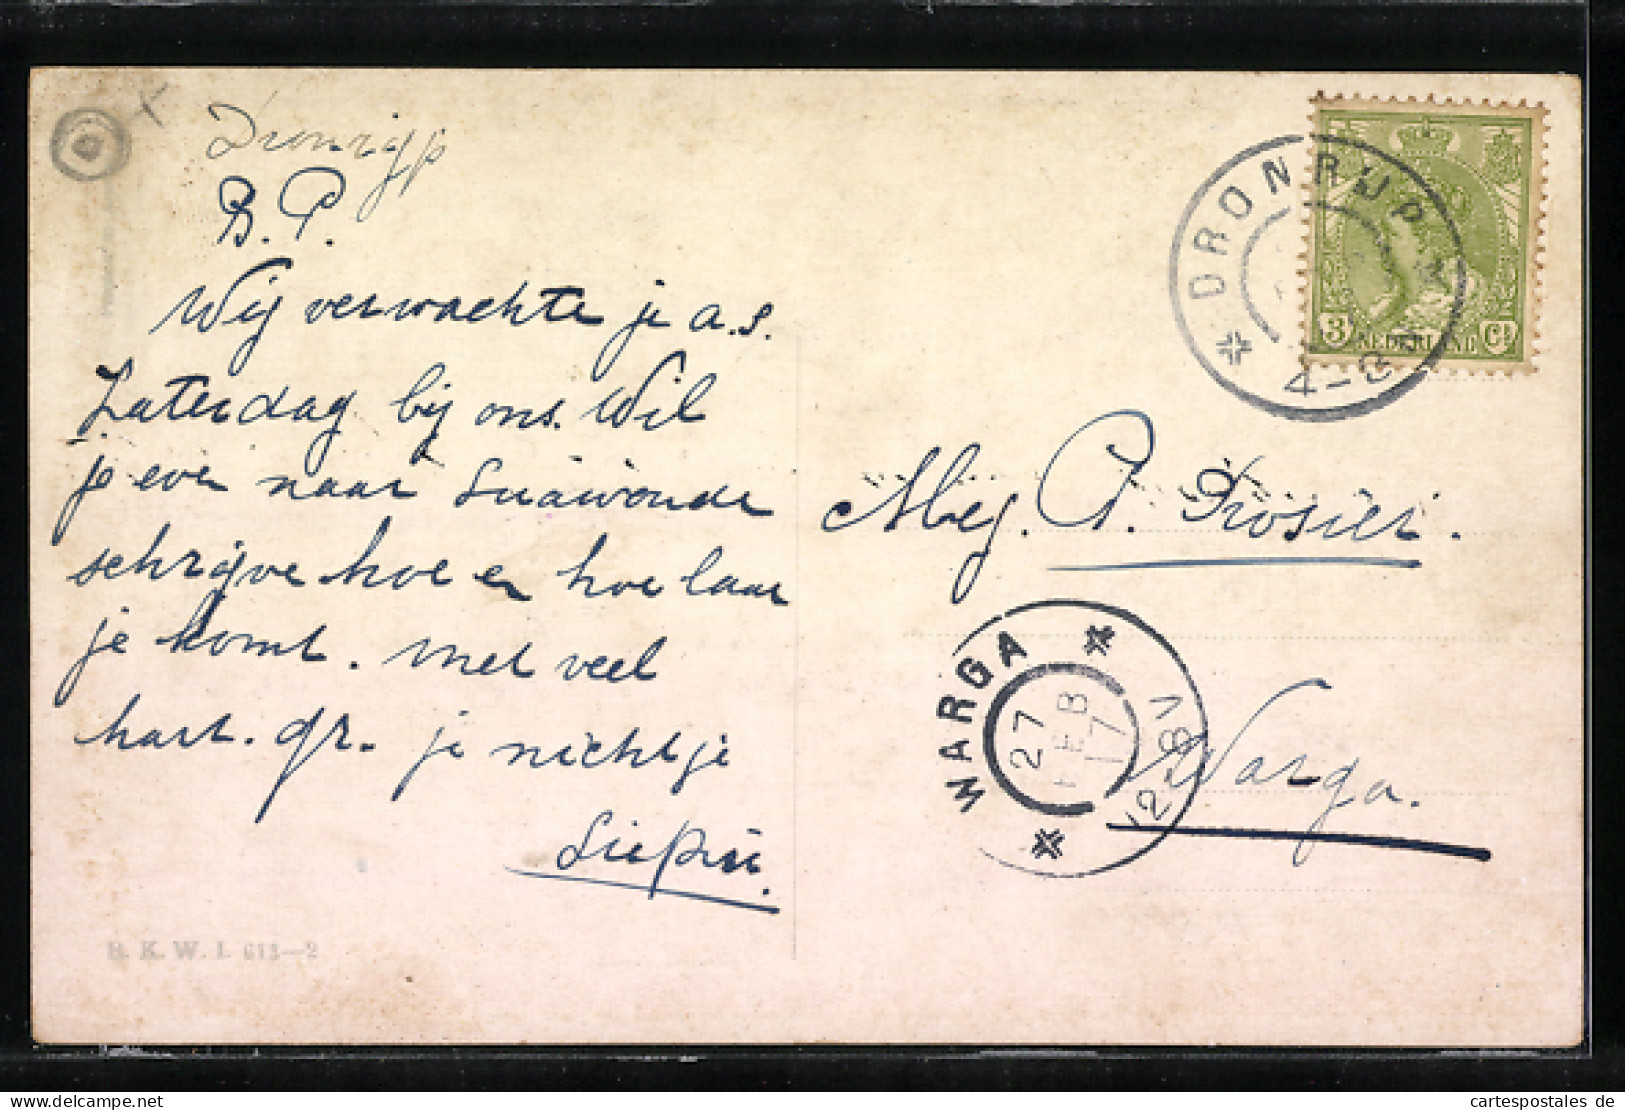 Dronrijp
B. P.
Wij verwachte je a.s.
Zaterdag bij ons. Wil
je even naar Suawoude
schrijve hoe en hoe laat
je komt. met veel
hart. gr. je nichtje
B. K. W. I. 613—2
DRONRIJP
4-8
3 NEDERLAND Ct
Mej. A.
WARGA
27 FEB 17
12-8V
Warga.
cartespostales de